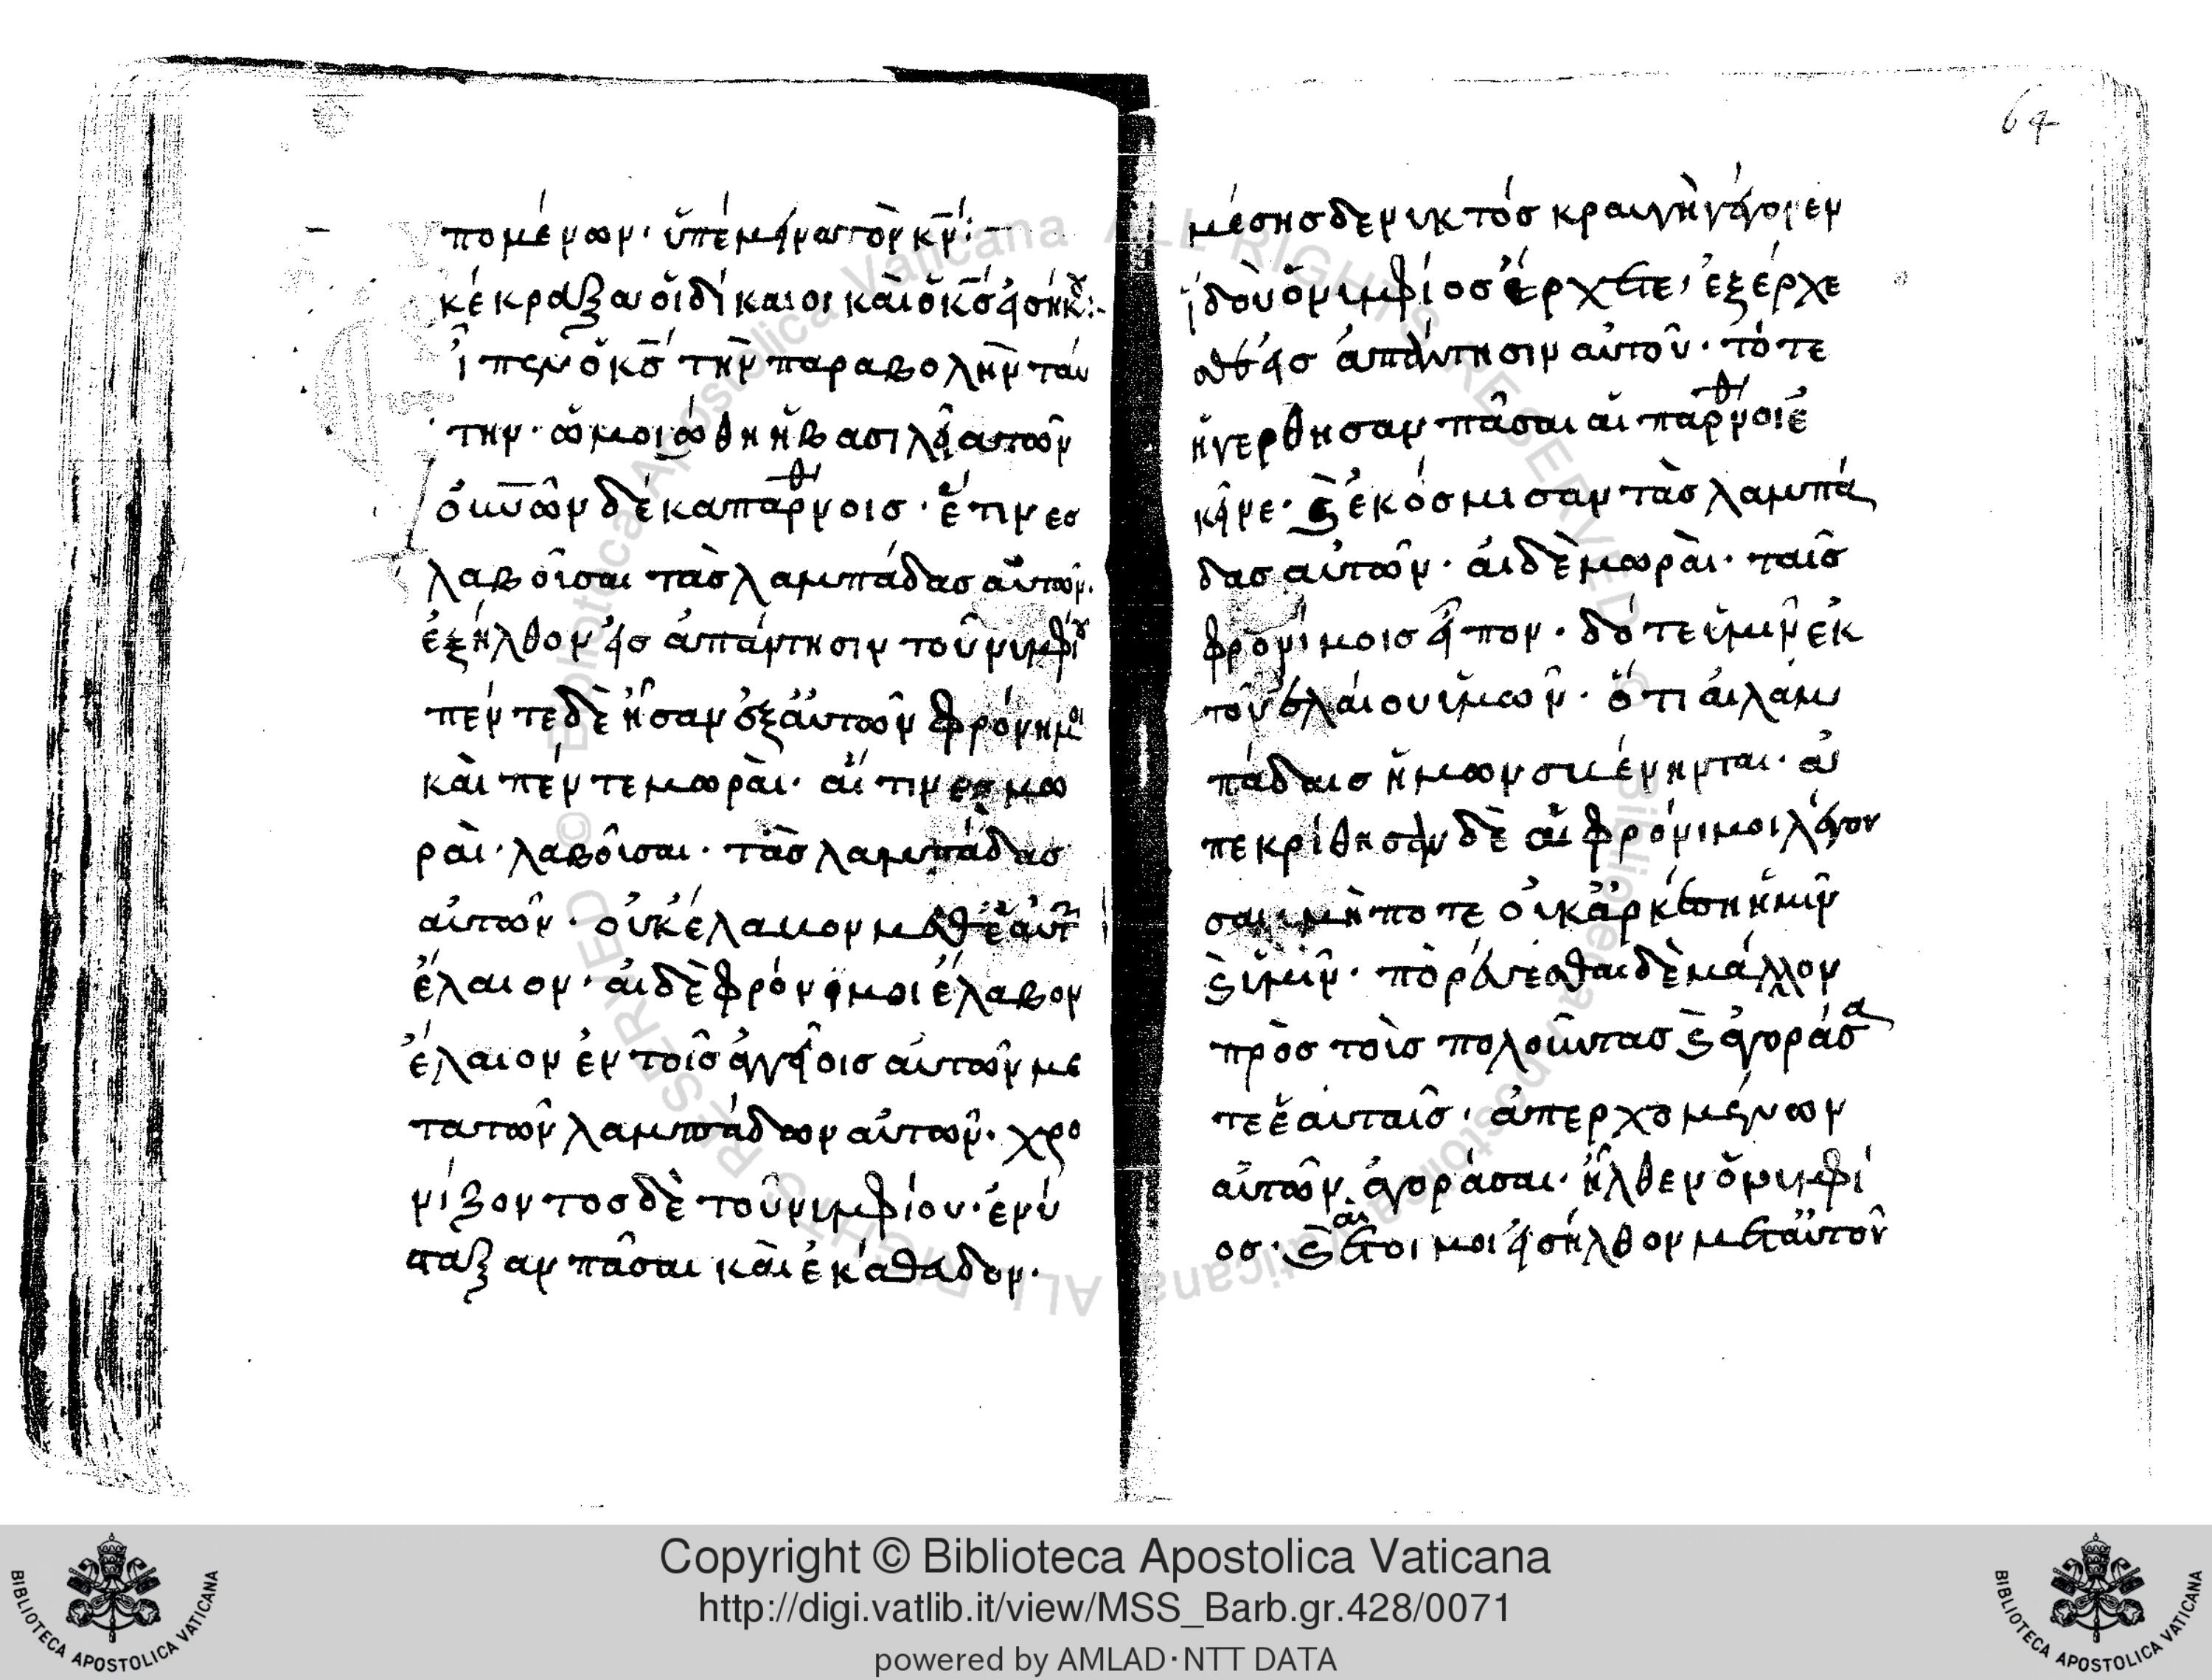 πομένων· ὑπέμϊναντὸν κν̅:
κέκραξαν οἵδίκαιοι καὶ ὁκς̅ εἰσήκου:
ἶπεν ὁκς̅ τὴν παραβολὴν ταύ
την· ὡμοιώθη ἡβασιλεία τῶν
ουνῶν δέκα παρθνοισ· ἕτινεσ
λαβοῦσαι τὰσ λαμπάδασ αὐτῶν·
ἐξῆλθον εἰσ ἀπάντησιν τοῦ νυμφίου
πέντε δὲ ἦσαν ἐξἀυτῶν φρόνημοι
καὶ πέντε μωρὰι· αἵτινεσ μω
ρὰι· λαβοῦσαι· τὰσ λαμπάδασ
αὐτῶν· οὐκέλαβον μεθἑαυτ
ἔλαιον· ἁιδὲ φρόνιμοι ἔλαβον
ἔλαιον ἐν τοῖσ ἀγγείοισ αὐτῶν με
τατῶν λαμπάδων αὐτῶν· χρο
νίζοντοσ δὲ τοῦ νυμφίου· ἐνύ
σταξαν πᾶσαι καὶ ἐκάθευδον·
μέσησ δενυκτόσ κραυγὴ γέγονεν
ἰδοὺ ὁνυμφίοσ ἔρχεται· ἐξέρχε
σθε εἰσ ἀπάντησιν αὐτοῦ· τότε
ἡγερθησαν πᾶσαι αἱ παρθνοι ἐ
κεῖνε· καὶ ἐκόσμισαν τὰσ λαμπά
δασ αὐτῶν· ἁιδὲ μωρὰι· ταῖσ
φρονίμοισ εἶπον· δότε ὑμῖν ἐκ
τοῦ ἐλάιου ὑμῶν· ὅτι ἁιλαμ
πάδαισ ἡμων σβέννηνται· ἀ
πεκρίθησαν δὲ αἱ φρόνιμοι λέγου
σαι· μὴποτε οὐκ ἀρκέση ἡμῖν
καὶ ὑμῖν· πὸρεύεσθαι δὲ μάλλον
πρὸσ τοὺσ πολοῦντασ καὶ ἀγοράσα
τε ἑαυταῖσ· ἀπερχομένων
αὐτῶν ἀγοράσαι· ἦλθεν ὁνυμφί
οσ· καὶ αἱ ἕτοιμοι εἰσῆλθον μεταὐτοῦ
64
Copyright © Biblioteca Apostolica Vaticana
http://digi.vatlib.it/view/MSS_Barb.gr.428/0071
powered by AMLAD·NTT DATA
BIBLIOTECA APOSTOLICA VATICANA
BIBLIOTECA APOSTOLICA VATICANA